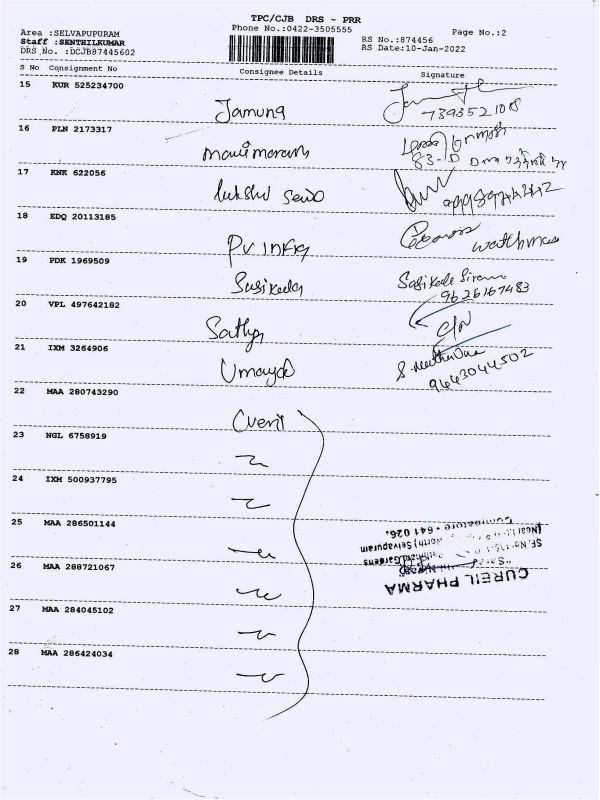 TPC/CJB DRS - PRR
Area :SELVAPUPURAM
Phone No.:0422-3505555
Page No.:2
Staff :SENTHILKUMAR
RS No.:874456
DRS No. :DCJB87445602
RS Date:10-Jan-2022
S No Consignment No Consignee Details Signature
15 KUR 525234700
Jamuna
7393521018
16 PLN 2173317
manimaran
83-D
17 KNK 622056
18 EDQ 20113185
watchman
19 PDK 1969509
Sasikala
9626167483
20 VPL 497642182
Sathya
21 IXM 3264906
Umayal
9443044502
22 MAA 280743290
Cureil
23 NGL 6758919
24 IXM 500937795
25 MAA 286501144
26 MAA 288721067
27 MAA 284045102
28 MAA 286424034
CUREIL PHARMA
Gardens
North) Selvapuram
Coimbatore - 641 026.